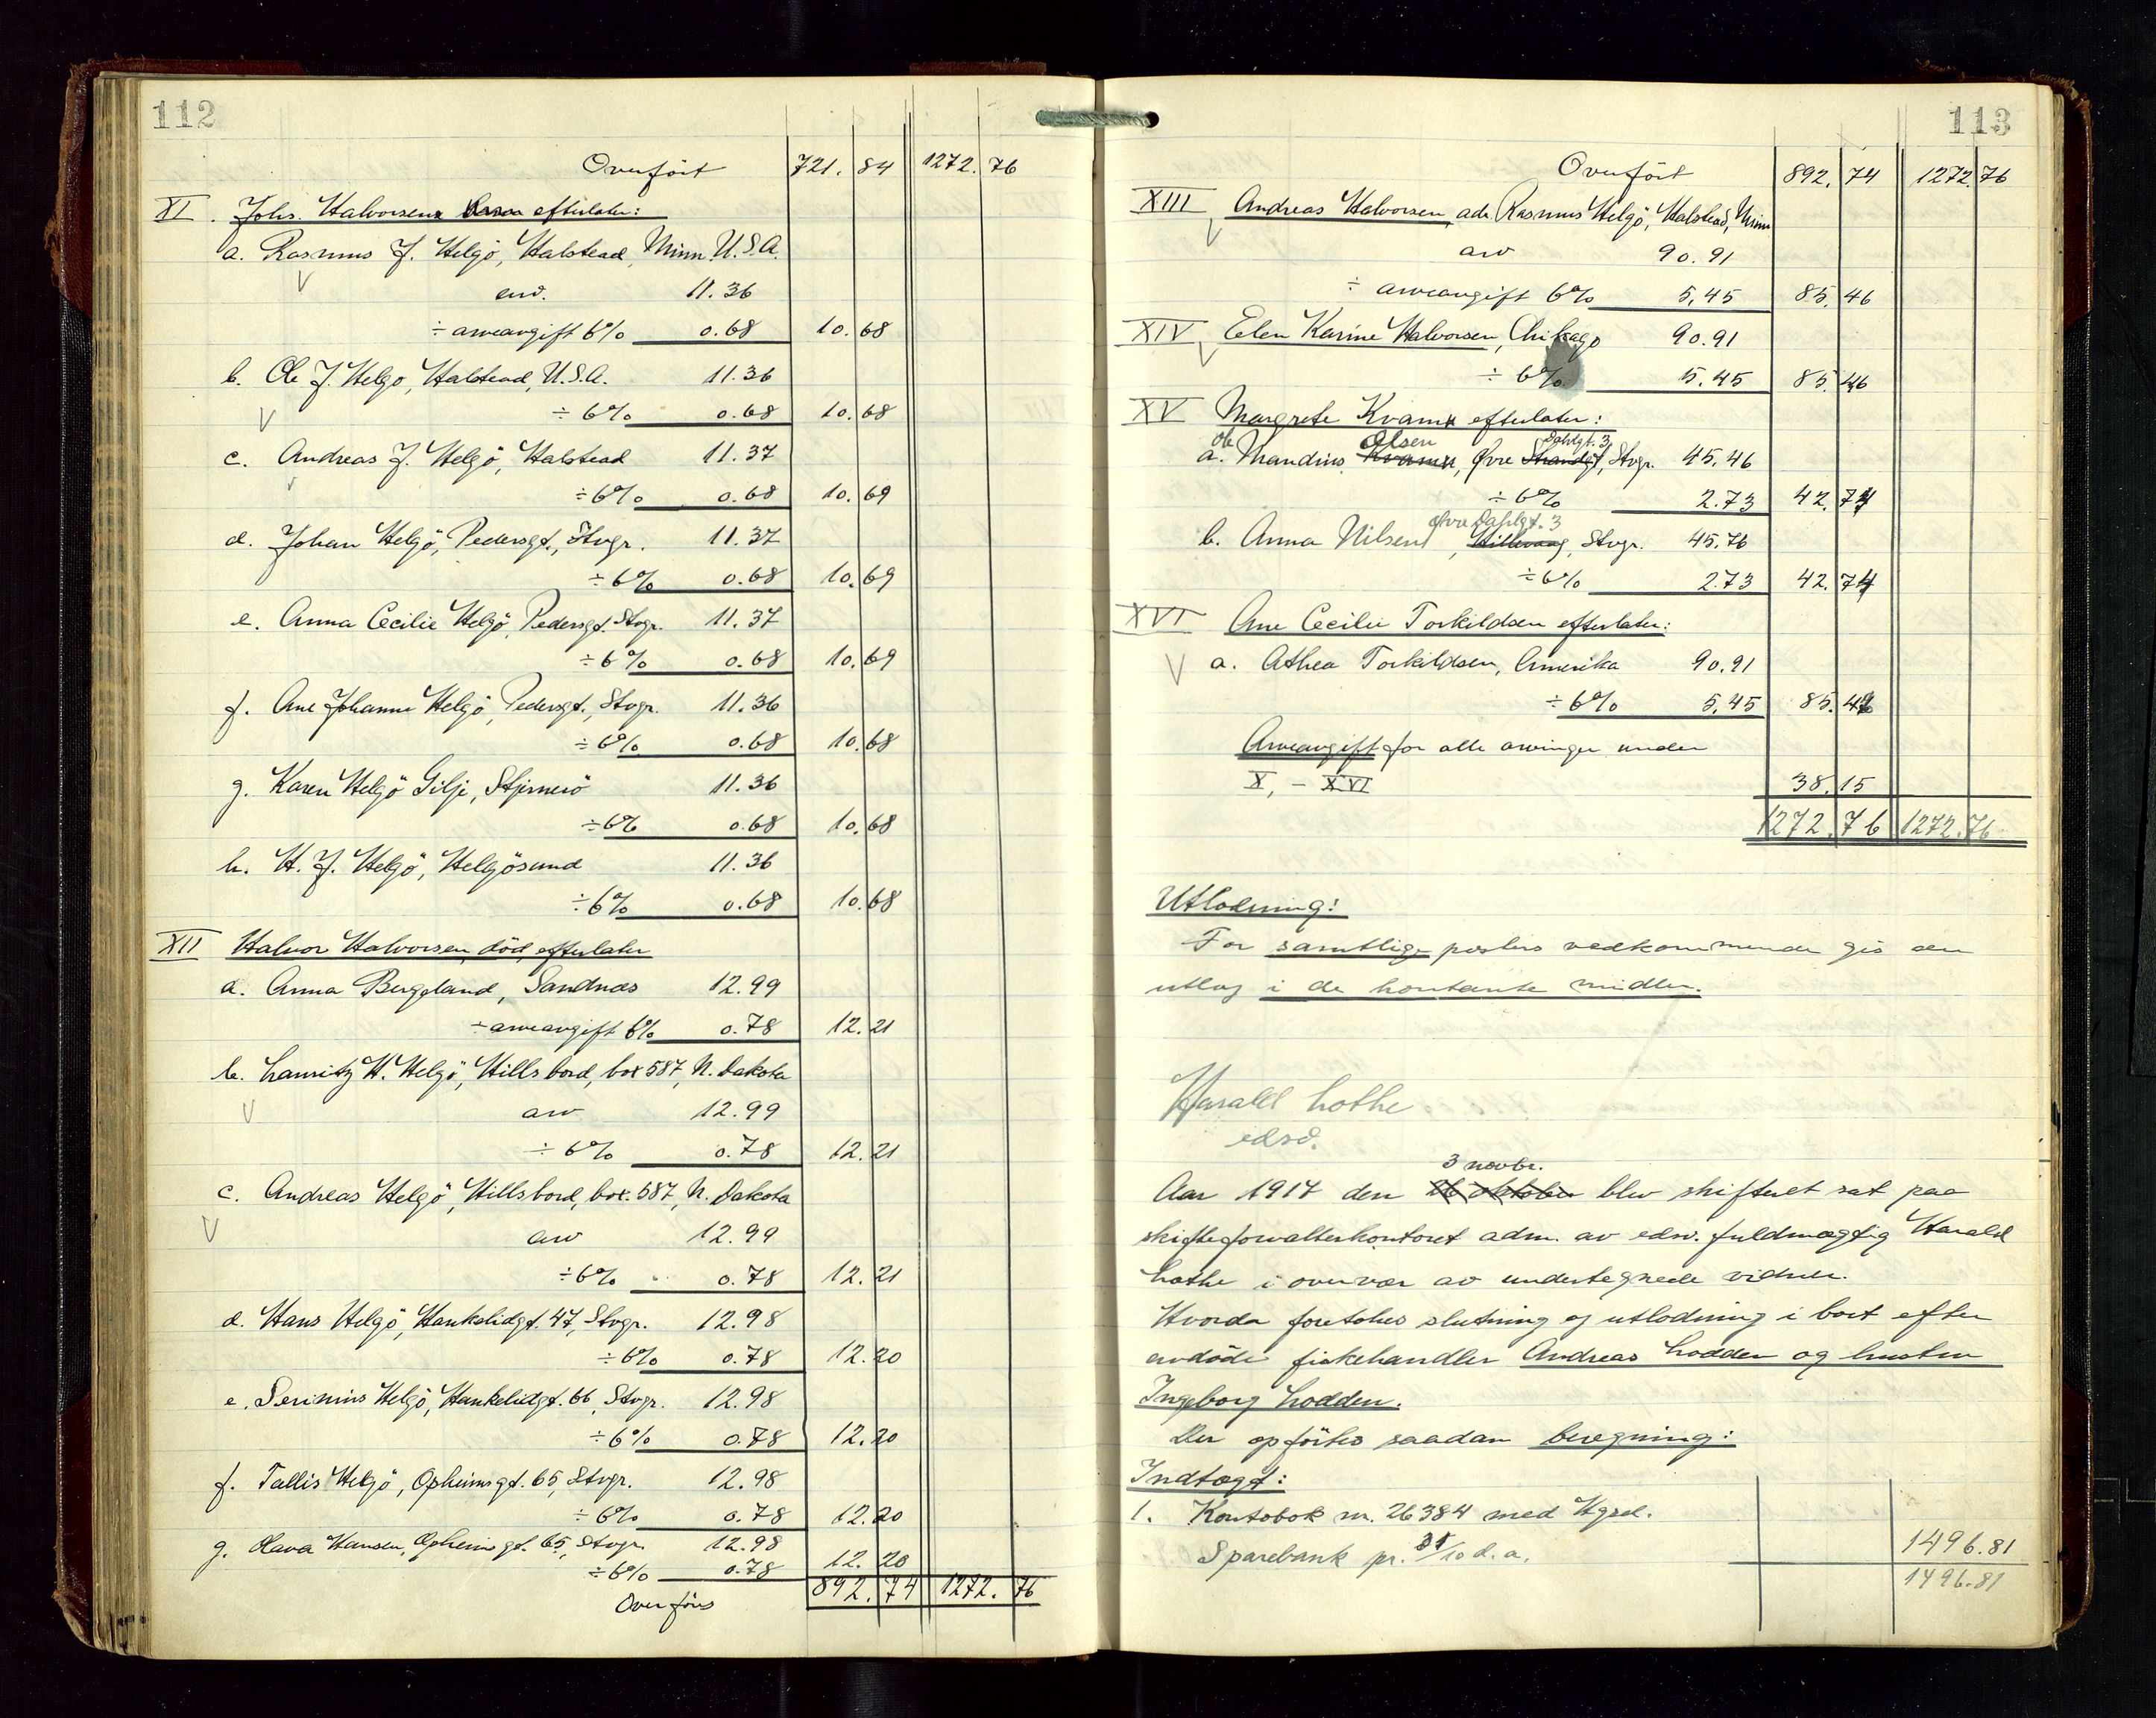 112
Overført 721. 84 1272. 76
XI. Johs. Halvorsen efterlater:
a. Rasmus J. Helgö, Halstead, Minn. U.S.A.
arv. 11.36
÷ arveavgift 6% 0.68 10.68
b. Ole J. Helgö, Halstead, U.S.A. 11.36
÷ 6% 0.68 10.68
c. Andreas J. Helgö, Halstead 11.37
÷ 6% 0.68 10.69
d. Johan Helgö, Pedersgt., Stvgr. 11.37
÷ 6% 0.68 10.69
e. Anna Cecilie Helgö, Pedersgt. Stvgr. 11.37
÷ 6% 0.68 10.69
f. Ane Johanne Helgö, Pedersgt., Stvgr. 11.36
÷ 6% 0.68 10.68
g. Karen Helgö Gilje, Stjernerö 11.36
÷ 6% 0.68 10.68
h. H. J. Helgö, Helgösund 11.36
÷ 6% 0.68 10.68
XII Halvor Halvorsen, död, efterlater
a. Anna Bergeland, Sandnæs 12.99
÷ arveavgift 6% 0.78 12.21
b. Lauritz H. Helgö, Hillsbord, box 587, N. Dakota
arv 12.99
÷ 6% 0.78 12.21
c. Andreas Helgö, Hillsbord, box. 587, N. Dakota
arv 12.99
÷ 6% 0.78 12.21
d. Hans Helgö, Haukelidgt. 47, Stvgr. 12.98
÷ 6% 0.78 12.20
e. Serinius Helgö, Haukelidgt. 66, Stvgr. 12.98
÷ 6% 0.78 12.20
f. Tallis Helgö, Opheimsgt. 65, Stvgr. 12.98
÷ 6% 0.78 12.20
g. Olava Hansen, Opheimsgt. 65, Stvgr. 12.98
÷ 6% 0.78 12. 20
Overføres 892. 74 1272. 76
113
Overført 892. 74 1272. 76
XIII Andreas Halvorsen, adr. Rasmus Helgö, Halstead, Minn.
arv 90.91
÷ arveavgift 6% 5,45 85. 46
XIV Elen Karine Halvorsen, Chikago 90.91
÷ 6% 5.45 85. 46
XV Margrete Kvam efterlater:
Ole Olsen Dahlgt. 3
a. Mandius Kvam, Øvre Strandgt, Stvgr. 45.46
÷ 6% 2.73 42. 74
øvre Dahlgt. 3
b. Anna Nilsen, Hillevaag, Stvgr. 45.76
÷ 6% 2.73 42. 74
XVI Ane Cecilie Torkildsen efterlater:
a. Athea Torkildsen, Amerika 90.91
÷ 6% 5.45 85. 46
Arveavgift for alle arvinger under
X, - XVI 38. 15
1272. 76 1272. 76
Utlodning:
For samtlige posters vedkommende gis der
utlæg i de kontante midler.
Harald Lothe
edsv.
3 novbr.
Aar 1917 den 26 oktober blev skifteret sat paa
skifteforvalterkontoret adm. av edsv. fuldmægtig Harald
Lothe i overvær av undertegnede vidner.
Hvorda foretokes slutning og utlodning i boet efter
avdöde fiskehandler Andreas Lodden og hustru
Ingeborg Lodden.
Der opførtes saadan beregning:
Indtægt:
1. Kontobok nr. 26384 med Hgsd.
Sparebank pr. 31/10 d.a. 1496.81
1496.81